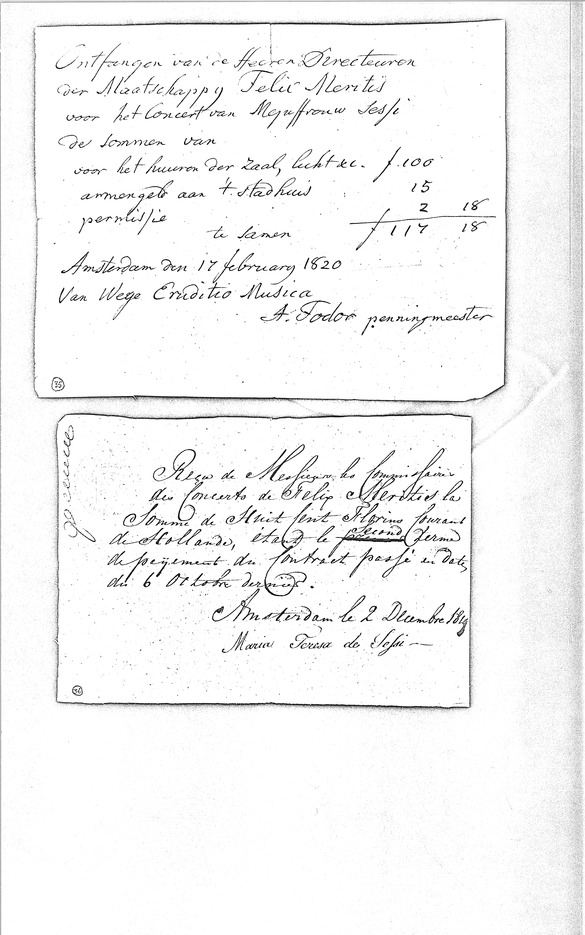 Ontfangen van de Heeren Directeuren
der Maatschappy Felix Meritis
voor het Concert van Mejuffrouw Sessi
de sommen van
voor het huuren der Zaal, licht &c. f. 100
armengeld aan 't stadhuis 15
permissie 2 18
te samen f 117 18
Amsterdam den 17 february 1820
Van Wege Eruditio Musica
A. Fodor penningmeester
35
Reçu de Messieurs les Commissaires
des Concerts de Felix Meritis la
Somme de Huit Cent Florins Courant
de Hollande, étant le second terme
de payement du Contract passé en date
du 6 Octobre dernier.
Amsterdam le 2 Decembre 1819
Maria Teresa de Sessi
36